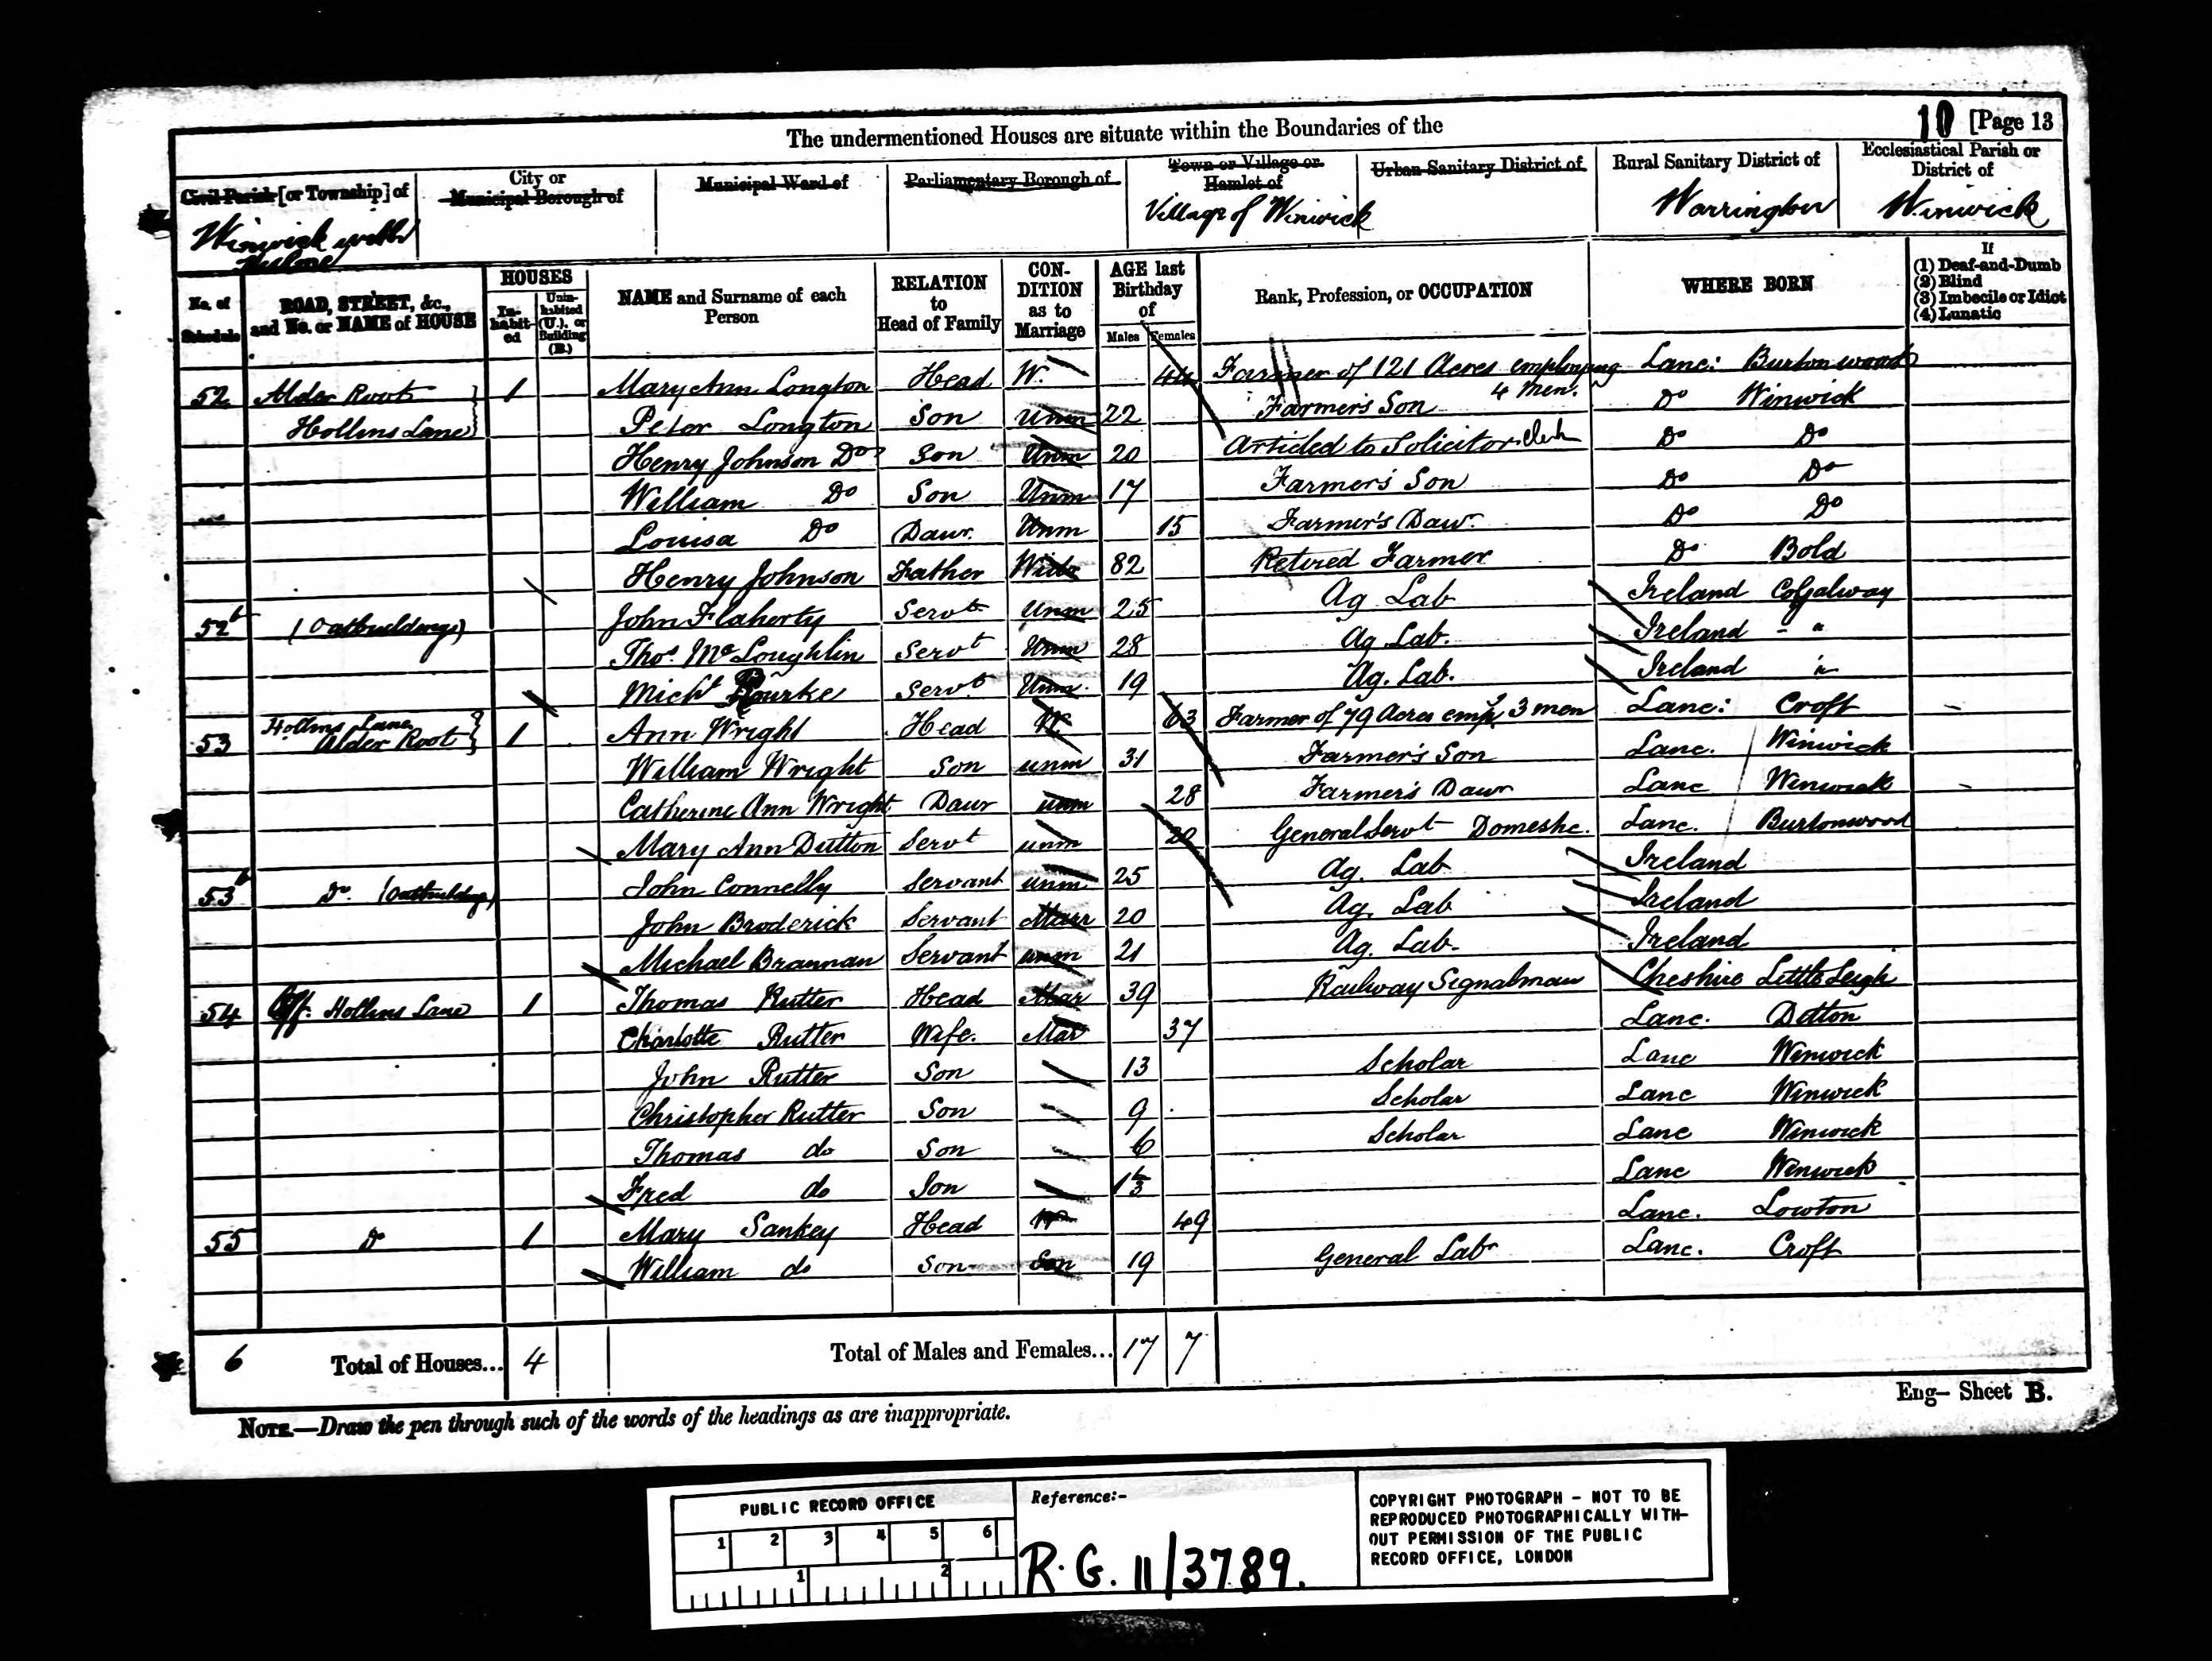 The undermentioned Houses are situate within the Boundaries of the
10 [Page 13
Civil Parish [or Township] of
City or Municipal Borough of
Municipal Ward of
Parliamentary Borough of
Town or Village or Hamlet of
Urban Sanitary District of
Rural Sanitary District of
Ecclesiastical Parish or District of
Winwick with
Village of Winwick
Warrington
Winwick
No. of Schedule
ROAD, STREET, &c., and No. or NAME of HOUSE
HOUSES
Inhabited
Uninhabited (U.), or Building (B.)
NAME and Surname of each Person
RELATION to Head of Family
CONDITION as to Marriage
AGE last Birthday of
Males Females
Rank, Profession, or OCCUPATION
WHERE BORN
If (1) Deaf-and-Dumb (2) Blind (3) Imbecile or Idiot (4) Lunatic
52 Alder Root 1 Mary Ann Longton Head W. 44 Farmer of 121 Acres employing 4 Men. Lanc: Burtonwood
Hollins Lane Peter Longton Son Unm 22 Farmer's Son Do Winwick
Henry Johnson Do Son Unm 20 Articled to Solicitor Clerk Do Do
William Do Son Unm 17 Farmer's Son Do Do
Louisa Do Daur. Unm 15 Farmer's Daur. Do Do
Henry Johnson Father Widr 82 Retired Farmer Do Bold
52b (Outbuildings) John Flaherty Servt Unm 25 Ag Lab Ireland Co Galway
Thos. McLoughlin Servt Unm 28 Ag. Lab. Ireland - "
Michl Rourke Servt Unm. 19 Ag. Lab. Ireland "
53 Hollins Lane Alder Root 1 Ann Wright Head W. 63 Farmer of 79 Acres empg 3 men Lanc: Croft
William Wright Son unm 31 Farmer's Son Lanc. Winwick
Catherine Ann Wright Daur unm 28 Farmer's Daur Lanc Winwick
Mary Ann Dutton Servt unm 20 General Servt Domestic. Lanc. Burtonwood
53b Do. (Outbuildings) John Connelly Servant unm 25 Ag. Lab Ireland
John Broderick Servant Marr 20 Ag. Lab Ireland
Michael Brannan Servant unm 21 Ag. Lab. Ireland
54 Off. Hollins Lane 1 Thomas Rutter Head Mar 39 Railway Signalman Cheshire Little Leigh
Charlotte Rutter Wife. Mar 37 Lanc. Ditton
John Rutter Son 13 Scholar Lanc Winwick
Christopher Rutter Son 9 Scholar Lanc Winwick
Thomas do Son 6 Scholar Lanc Winwick
Fred do Son Lanc Winwick
55 Do 1 Mary Sankey Head W 49 Lanc. Lowton
William do Son Son 19 General Labr Lanc. Croft
6 Total of Houses... 4 Total of Males and Females... 17 7
Eng— Sheet B.
NOTE.—Draw the pen through such of the words of the headings as are inappropriate.
PUBLIC RECORD OFFICE
1 2 3 4 5 6
1 2
Reference:-
R.G. 11/3789.
COPYRIGHT PHOTOGRAPH - NOT TO BE
REPRODUCED PHOTOGRAPHICALLY WITH-
OUT PERMISSION OF THE PUBLIC
RECORD OFFICE, LONDON